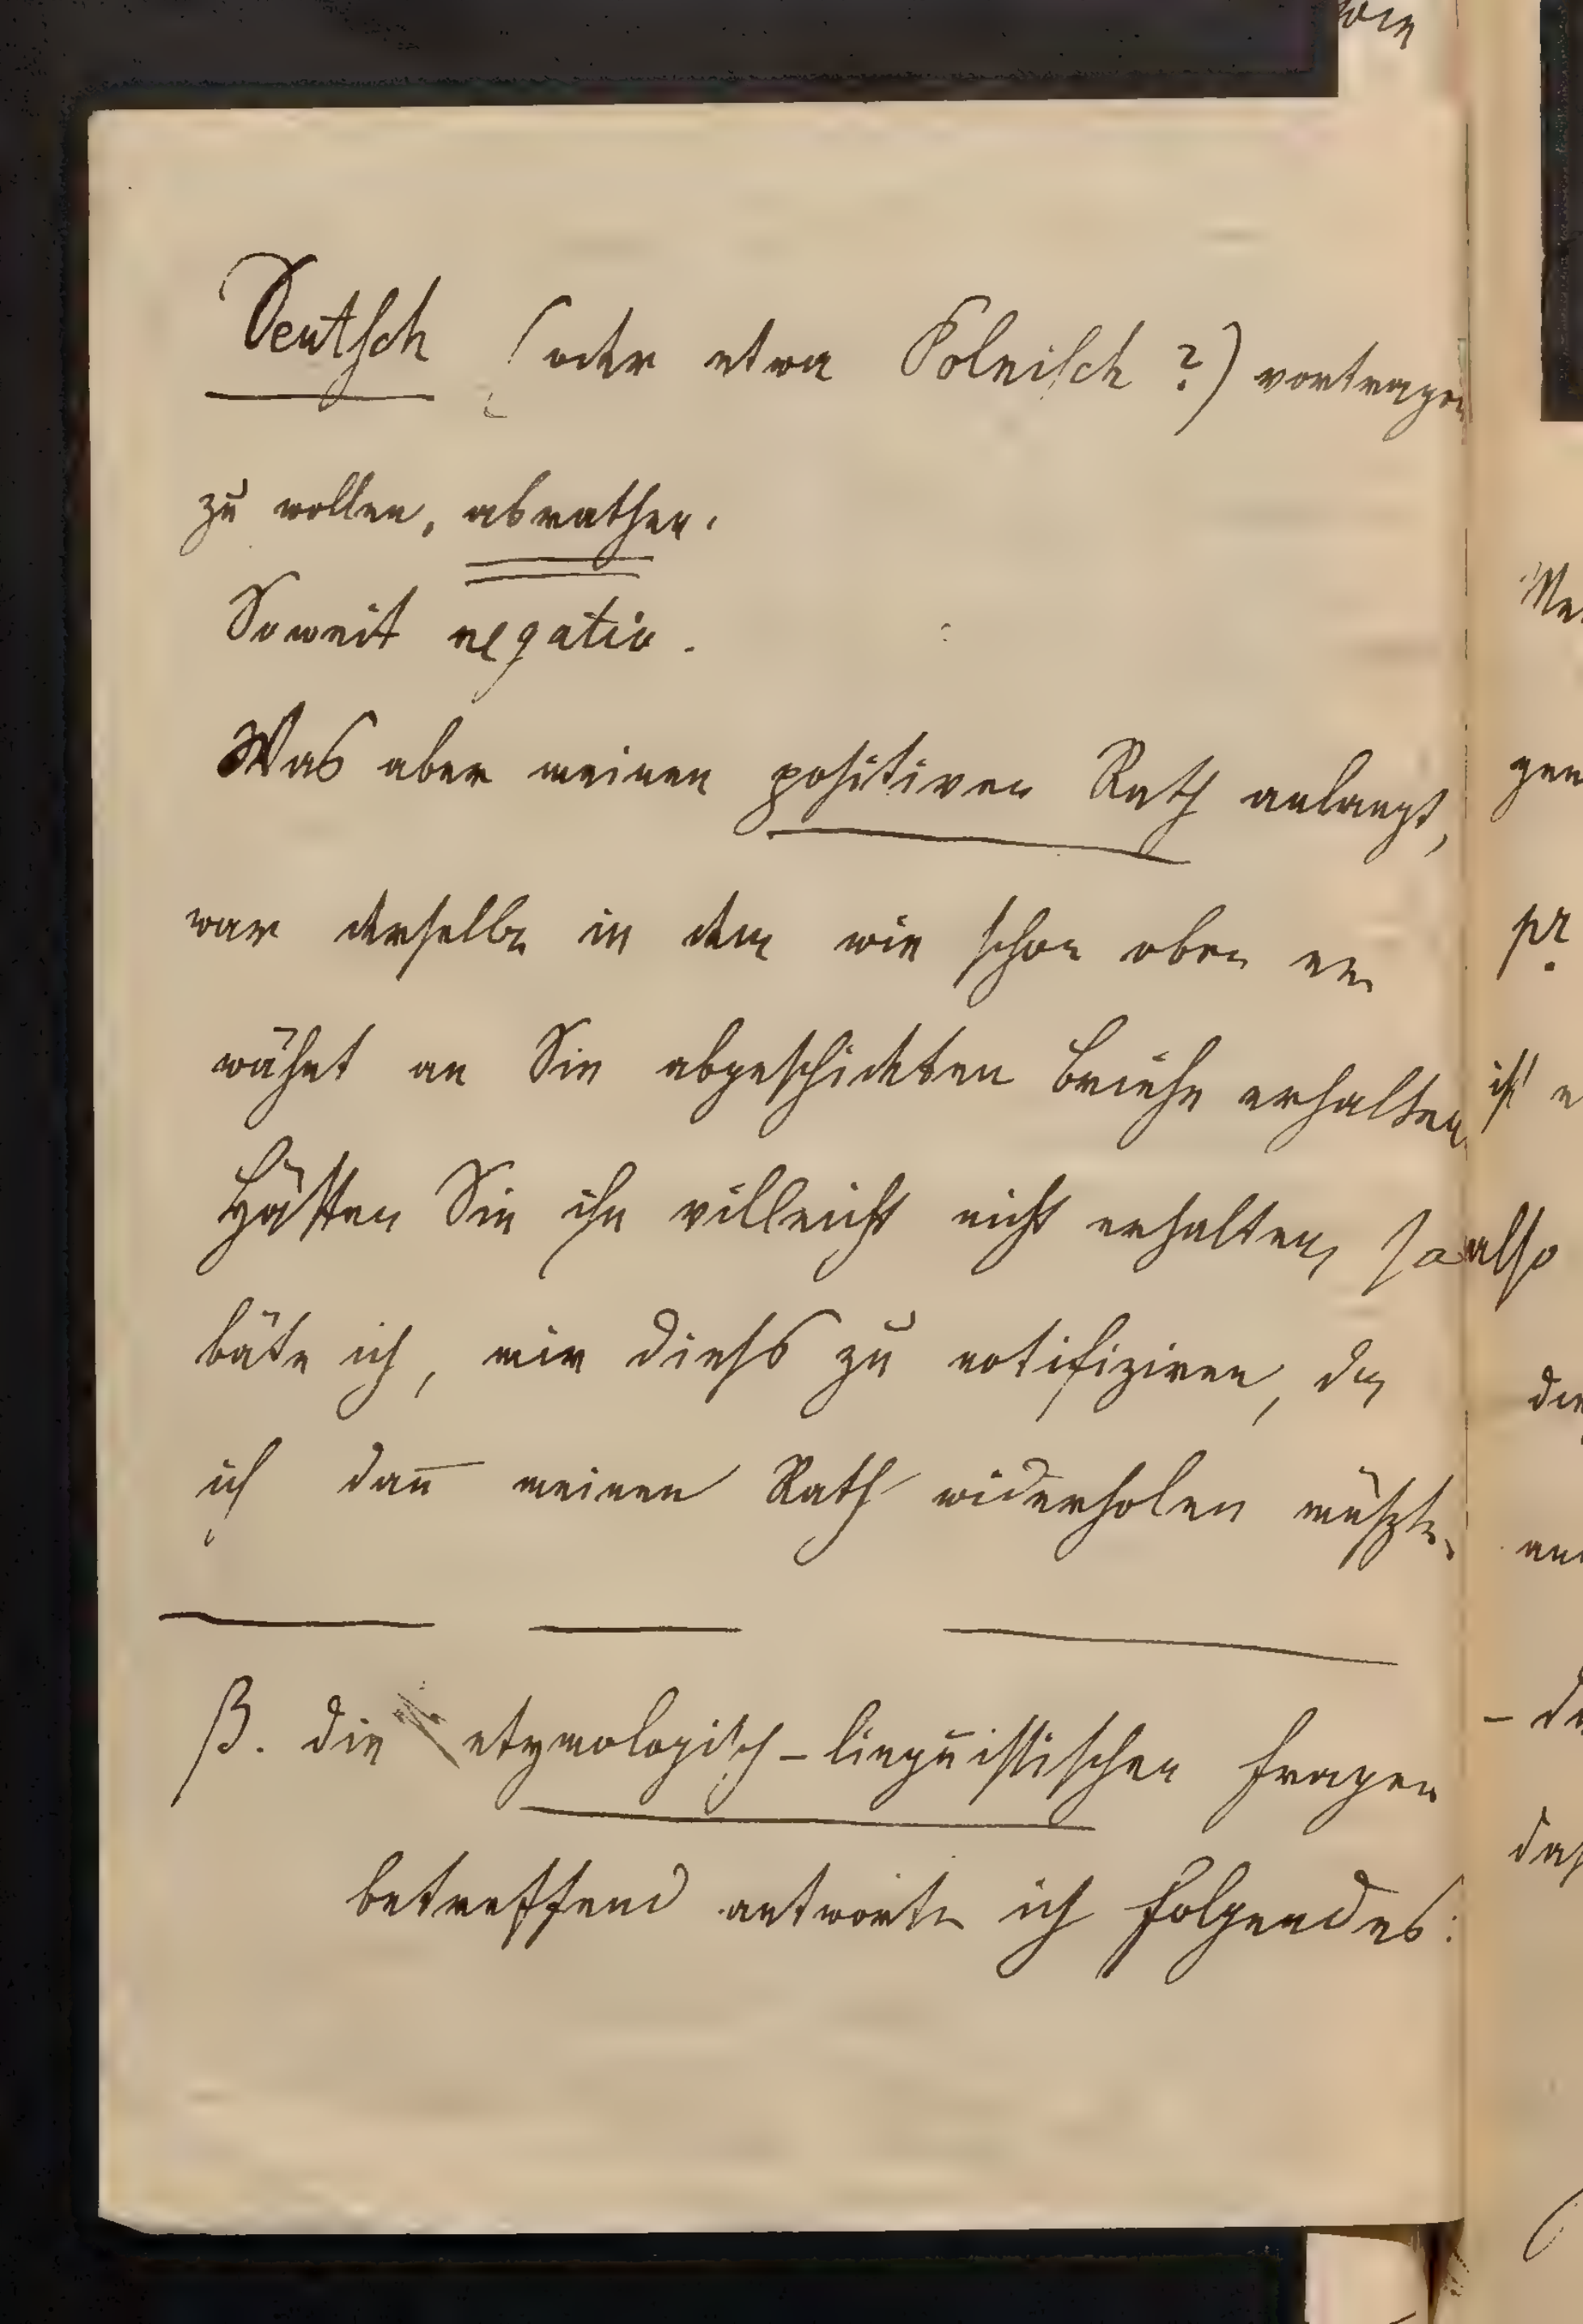 Deutsch (oder etwa Polnisch ?) vortragen
zu wollen, abrathen.
Soweit negativ.
Was aber meinen positiven Rath anlangt,
war derselbe in dem wie schon oben er
wähnt an Sie abgeschickten Briefe erhalten
Hätten Sie ihn villeicht nicht erhalten, so
bäte ich, mir diehs zu notifiziren, da
ich dan̄ meinen Rath widerholen müszte.
β. die etymologisch-linguistischen Fragen
betreffend antworte ich Folgendes:
also